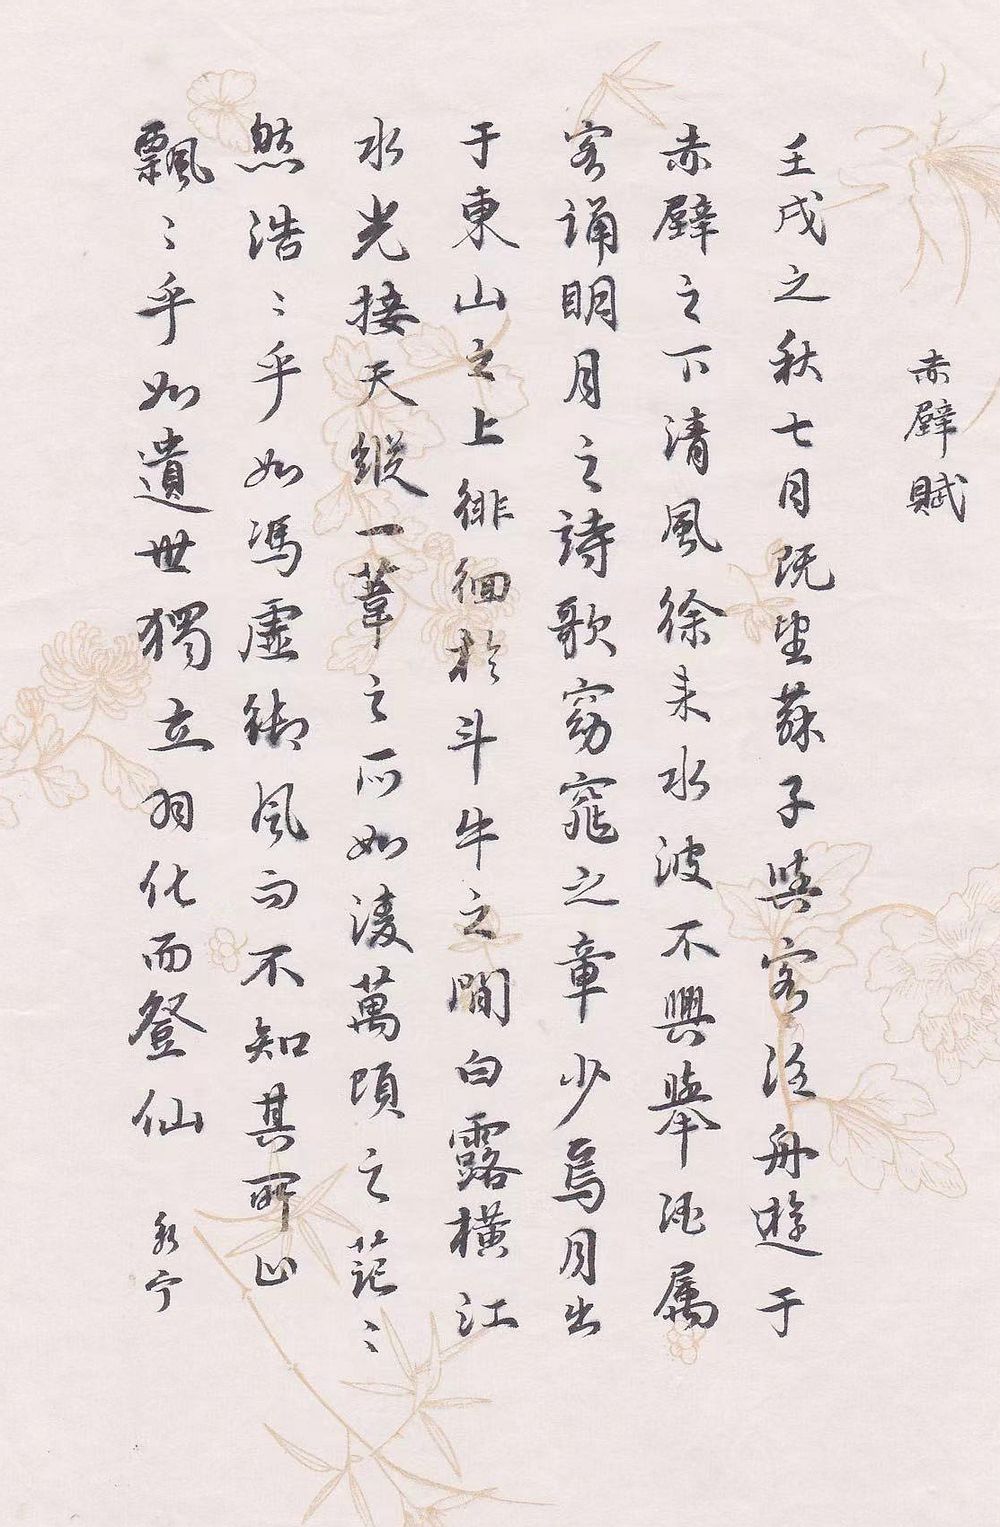 赤壁賦
壬戌之秋七月既望蘇子與客泛舟遊于
赤壁之下清風徐来水波不興舉酒属
客诵明月之詩歌窈窕之章少焉月出
于東山之上徘徊於斗牛之間白露橫江
水光接天縱一葦之所如淩萬頃之茫〻
然浩〻乎如馮虚御风而不知其所止
飄〻乎如遺世獨立羽化而登仙
永宁